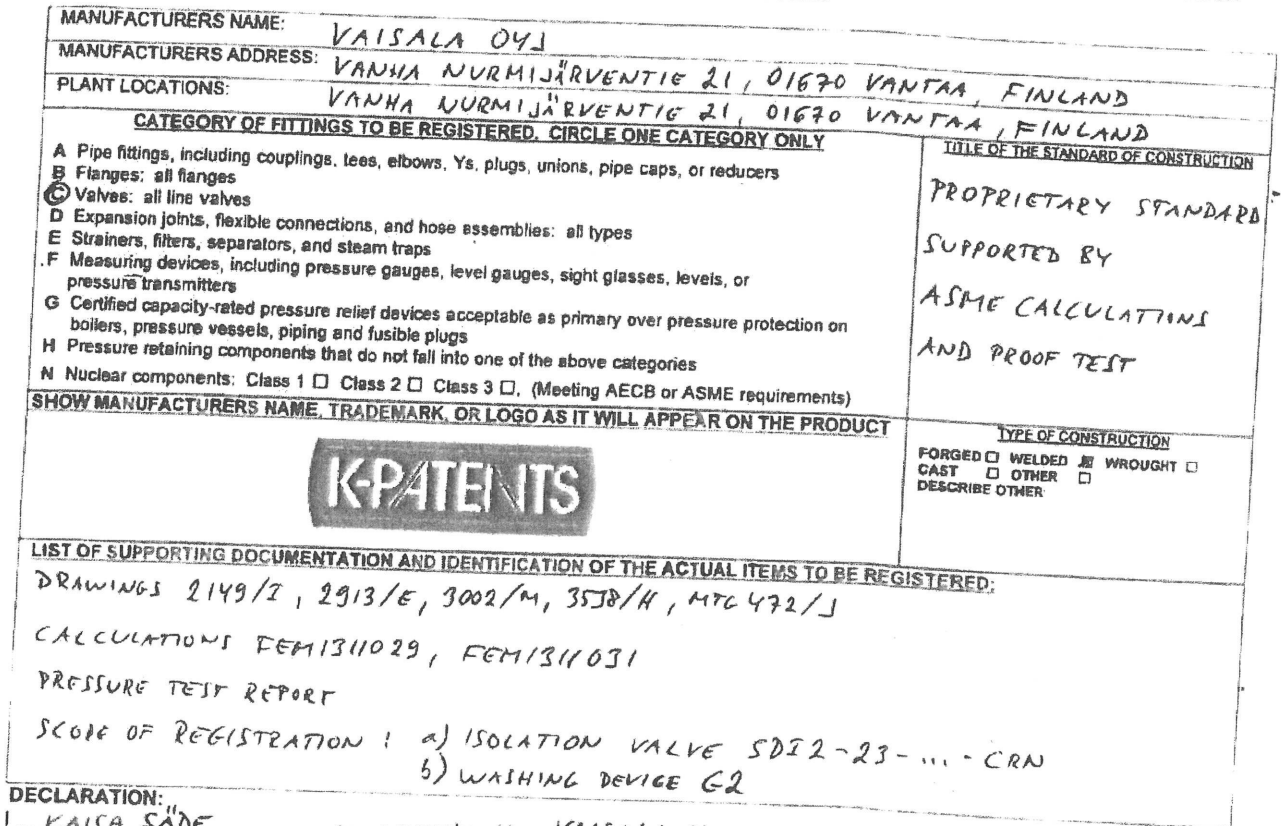 MANUFACTURERS NAME: VAISALA OYJ
MANUFACTURERS ADDRESS: VANHA NURMIJÄRVENTIE 21, 01670 VANTAA, FINLAND
PLANT LOCATIONS: VANHA NURMIJÄRVENTIE 21, 01670 VANTAA, FINLAND
CATEGORY OF FITTINGS TO BE REGISTERED. CIRCLE ONE CATEGORY ONLY
A Pipe fittings, including couplings, tees, elbows, Ys, plugs, unions, pipe caps, or reducers
B Flanges: all flanges
C Valves: all line valves
D Expansion joints, flexible connections, and hose assemblies: all types
E Strainers, filters, separators, and steam traps
F Measuring devices, including pressure gauges, level gauges, sight glasses, levels, or
pressure transmitters
G Certified capacity-rated pressure relief devices acceptable as primary over pressure protection on
boilers, pressure vessels, piping and fusible plugs
H Pressure retaining components that do not fall into one of the above categories
N Nuclear components: Class 1 ☐ Class 2 ☐ Class 3 ☐, (Meeting AECB or ASME requirements)
TITLE OF THE STANDARD OF CONSTRUCTION
PROPRIETARY STANDARD
SUPPORTED BY
ASME CALCULATIONS
AND PROOF TEST
SHOW MANUFACTURERS NAME, TRADEMARK, OR LOGO AS IT WILL APPEAR ON THE PRODUCT
K-PATENTS
TYPE OF CONSTRUCTION
FORGED ☐ WELDED ☒ WROUGHT ☐
CAST ☐ OTHER ☐
DESCRIBE OTHER
LIST OF SUPPORTING DOCUMENTATION AND IDENTIFICATION OF THE ACTUAL ITEMS TO BE REGISTERED:
DRAWINGS 2149/I, 2913/E, 3002/M, 3538/H, MTG 472/J
CALCULATIONS FEM1311029, FEM1311031
PRESSURE TEST REPORT
SCOPE OF REGISTRATION: a) ISOLATION VALVE SDI2-23-...-CRN
b) WASHING DEVICE G2
DECLARATION:
I, KAISA SÄDE